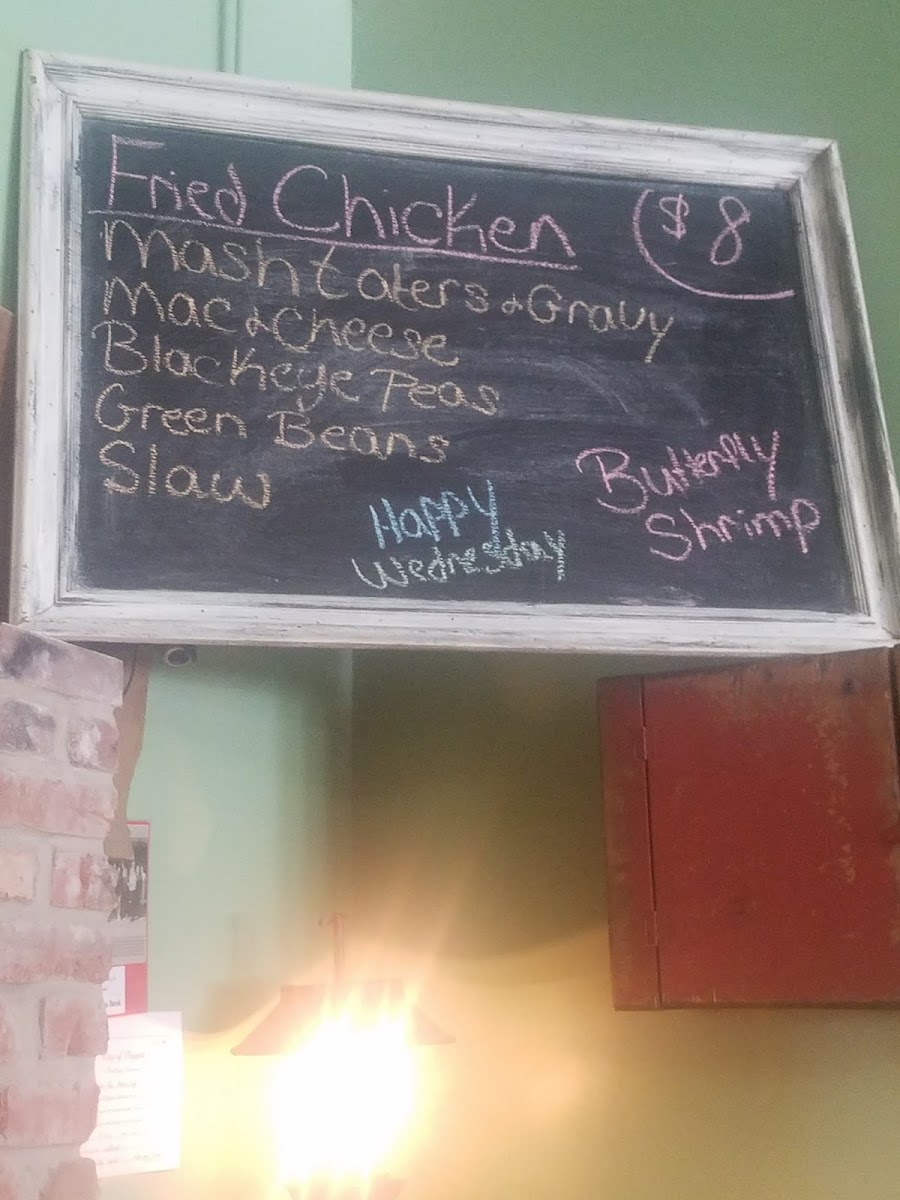 Fried Chicken $8
Mash taters & Gravy
Mac & Cheese
Blackeye Peas
Green Beans
Slaw
Butterfly
Shrimp
Happy
Wednesday